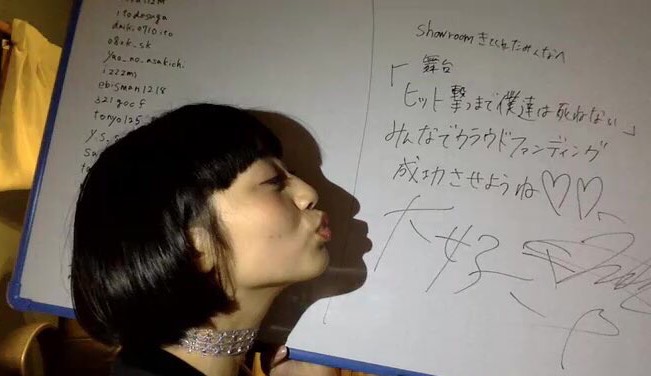 itodosaga
daiki0710ito
o8ok_sk
yao_no_asakichi
i222ms
ebisman1218
s21gocf
tonyo125
y.s.s
showroomきてくれたみんなへ
「舞台
ヒット撃つまで僕達は死ねない」
みんなでクラウドファンディング
成功させようね♡♡
大好